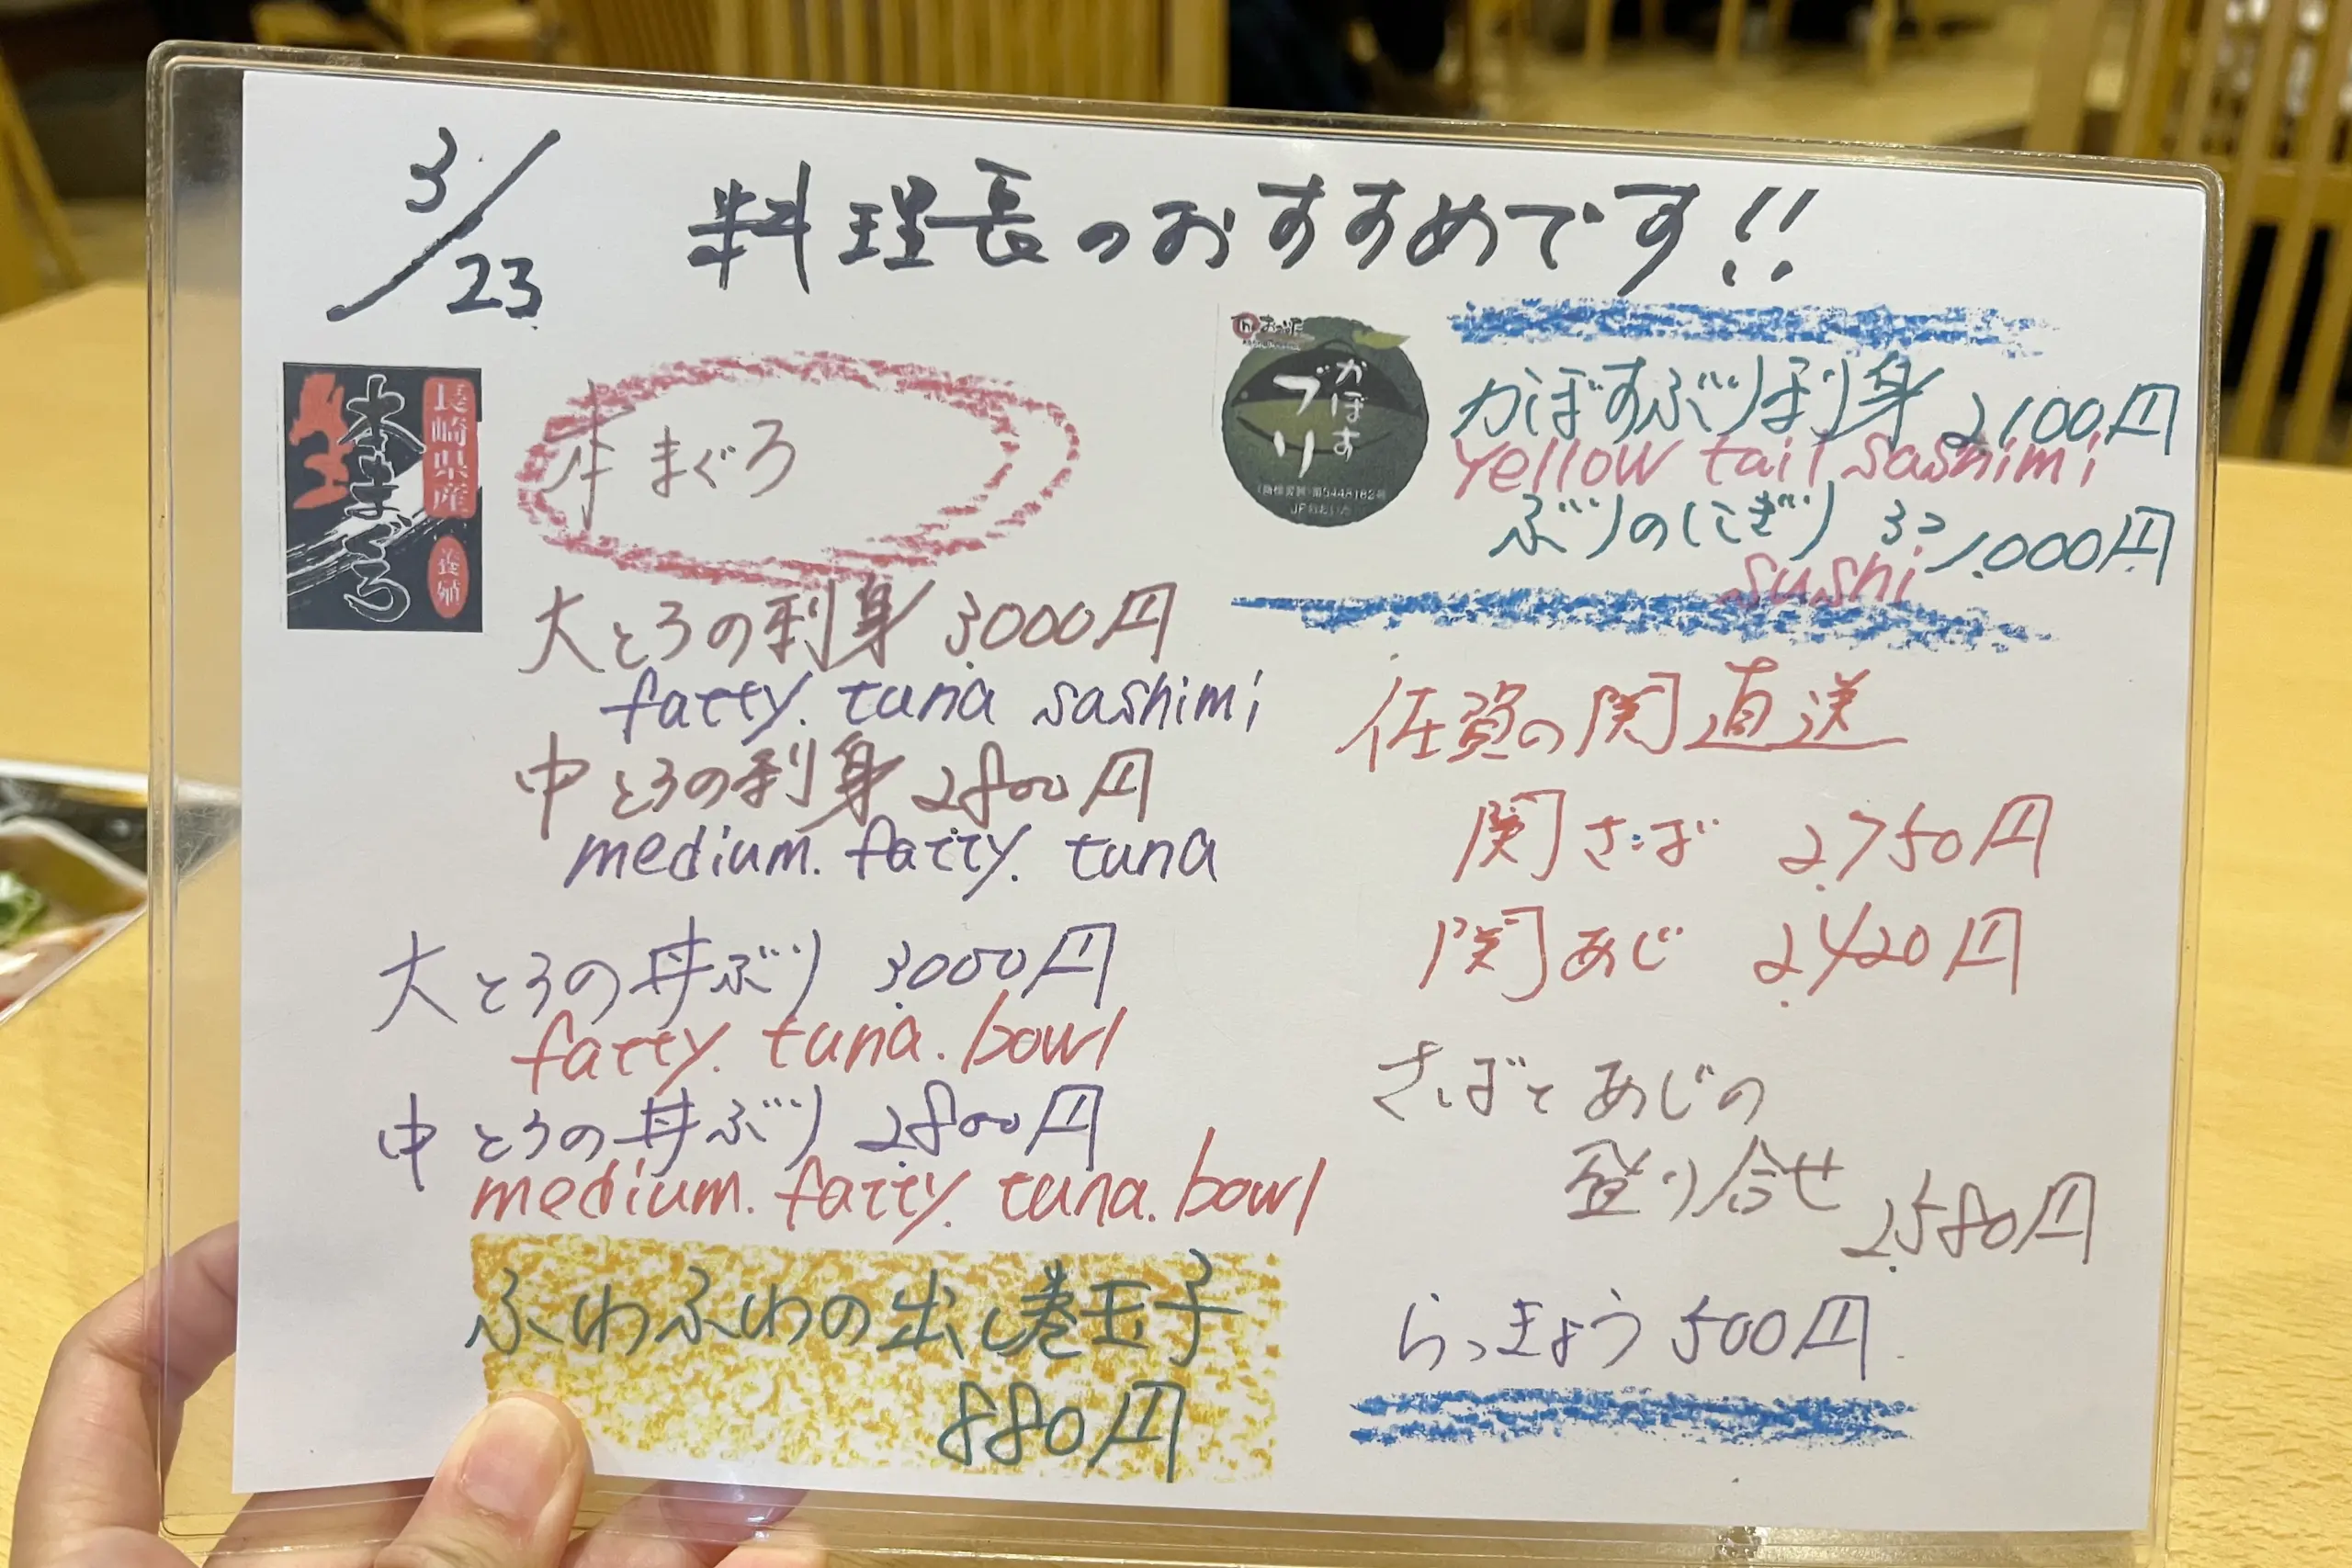 3/23
料理長のおすすめです!!
長崎県産
生
本まぐろ
養殖
本まぐろ
大とろの刺身 3,000円
fatty. tuna sashimi
中とろの刺身 2,800円
medium. fatty. tuna
大とろの丼ぶり 3,000円
fatty. tuna. bowl
中とろの丼ぶり 2,800円
medium. fatty. tuna. bowl
ふわふわの出し巻玉子
880円
かぼす
ブリ
JFおおいた
かぼすぶり刺身 2,100円
yellow tail sashimi
ぶりのにぎり 3つ 1,000円
sushi
佐賀の関直送
関さば 2,750円
関あじ 2,420円
さばとあじの
盛り合せ 2,580円
らっきょう 500円